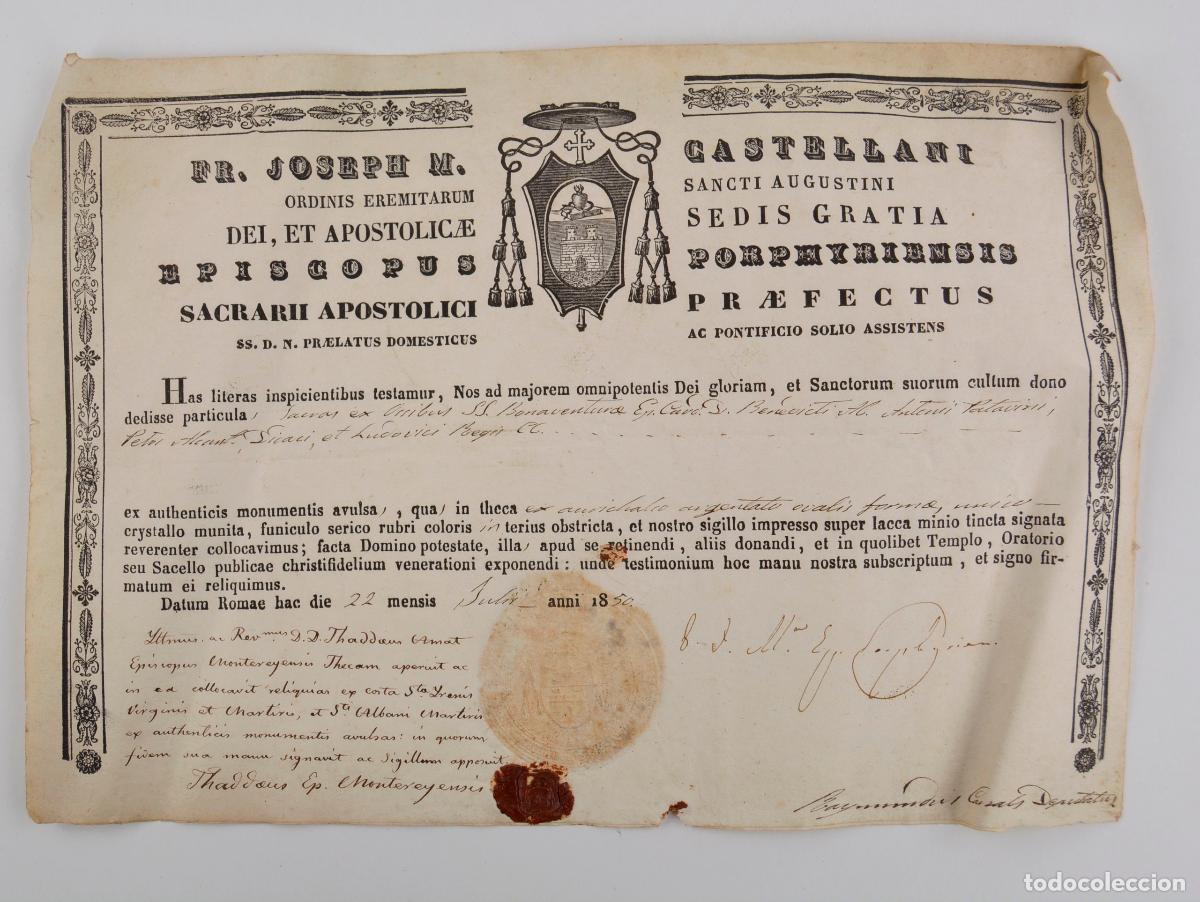 FR. JOSEPH M. CASTELLANI
ORDINIS EREMITARUM SANCTI AUGUSTINI
DEI, ET APOSTOLICÆ SEDIS GRATIA
EPISCOPUS PORPHYRIENSIS
SACRARII APOSTOLICI PRÆFECTUS
SS. D. N. PRÆLATUS DOMESTICUS AC PONTIFICIO SOLIO ASSISTENS
Has literas inspicientibus testamur, Nos ad majorem omnipotentis Dei gloriam, et Sanctorum suorum cultum dono
dedisse particulas sacras ex Ossibus SS. Bonaventuræ Ep. Card. D. Benedicti M. Antonii Patavini,
Petri Alcant. Didaci, et Ludovici Regis CC.
ex authenticis monumentis avulsas, quas in theca ex aurichalco argentato ovalis formæ, unico
crystallo munita, funiculo serico rubri coloris interius obstricta, et nostro sigillo impresso super lacca minio tincta signata
reverenter collocavimus; facta Domino potestate, illas apud se retinendi, aliis donandi, et in quolibet Templo, Oratorio
seu Sacello publicae christifidelium venerationi exponendi: unde testimonium hoc manu nostra subscriptum, et signo fir-
matum ei reliquimus.
Datum Romae hac die 22 mensis Julii anni 1850
Illmus. ac Revmus D.D. Thaddæus Amat
Episcopus Montereyensis Thecam aperuit ac
in ea collocavit reliquias ex costa Stæ Irenis
Virginis et Martiris, et Sti Albani Martiris
ex authenticis monumentis avulsas: in quorum
fidem sua manu signavit ac Sigillum apposuit
Thaddæus Ep. Montereyensis
F. J. Ma Ep. Porphyrien.
Raymundus Casals Deputatus
todocoleccion